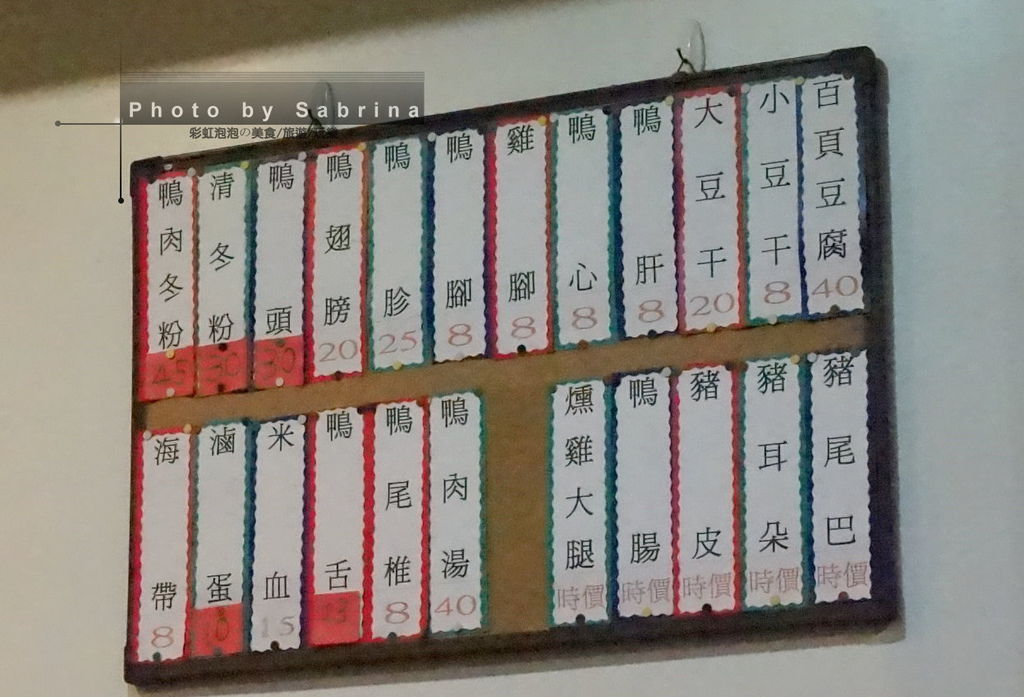 Photo by Sabrina
彩虹泡泡の美食/旅遊
鴨肉冬粉 45
清冬粉 30
鴨頭 30
鴨翅膀 20
鴨胗 25
鴨腳 8
雞腳 8
鴨心 8
鴨肝 8
大豆干 20
小豆干 8
百頁豆腐 40
海帶 8
滷蛋 10
米血 15
鴨舌
鴨尾椎 8
鴨肉湯 40
燻雞大腿 時價
鴨腸 時價
豬皮 時價
豬耳朵 時價
豬尾巴 時價